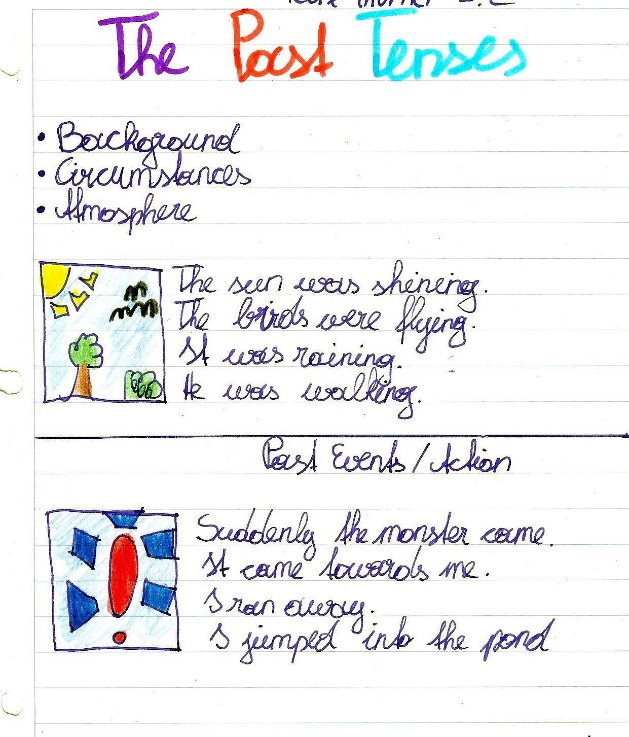 The Past Tenses
• Background
• Circumstances
• Atmosphere
The sun was shining.
The birds were flying.
It was raining.
He was walking.
Past Events / Action
Suddenly the monster came.
It came towards me.
I ran away.
I jumped into the pond